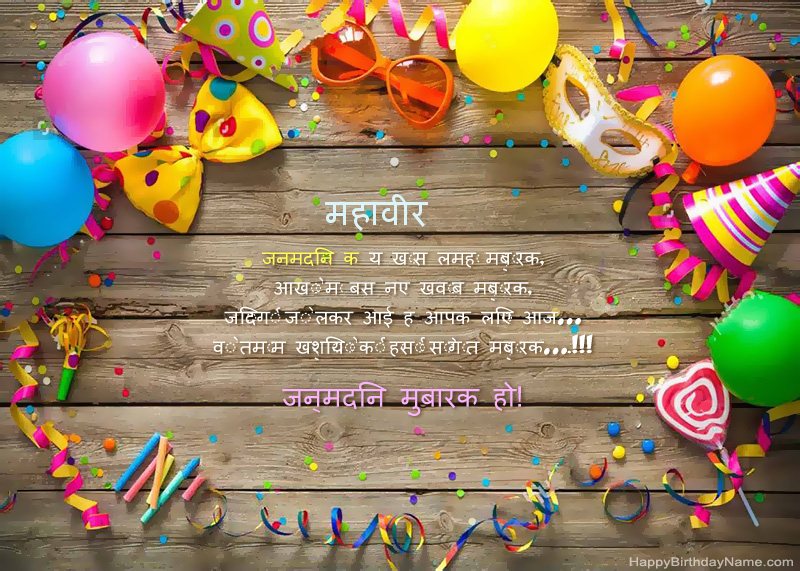 महावीर
जनमदिन क य खास लमहा मुबारक,
आखों मे बसे नए खवाब मुबारक,
जिंदगी जो लेकर आई ह आपके लिए आज...
वो तमाम खुशियों की हसीं सौगात मुबारक....!!!
जन्मदिन मुबारक हो!
HappyBirthdayName.com